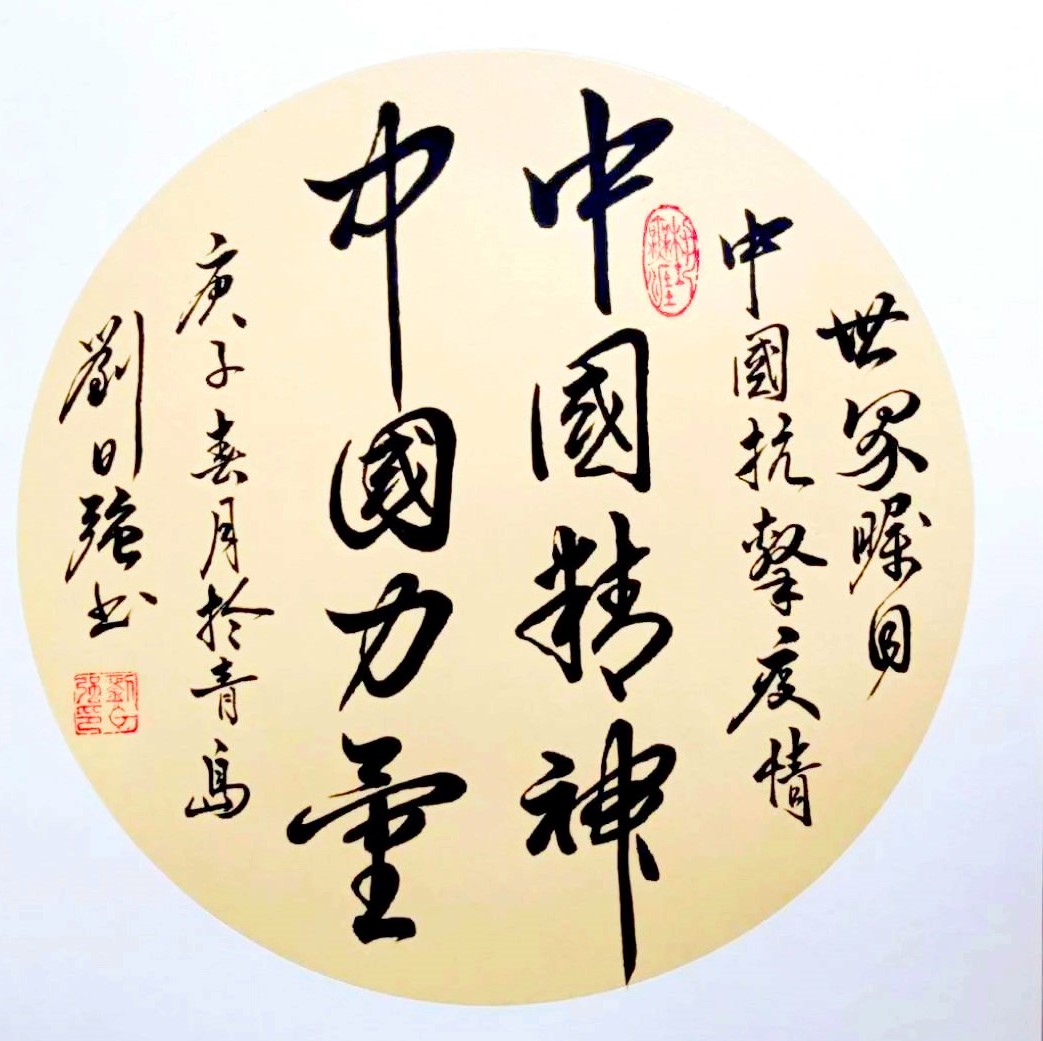 世界矚目
中國抗擊疫情
中國精神
中國力量
庚子春月於青島
劉日強书